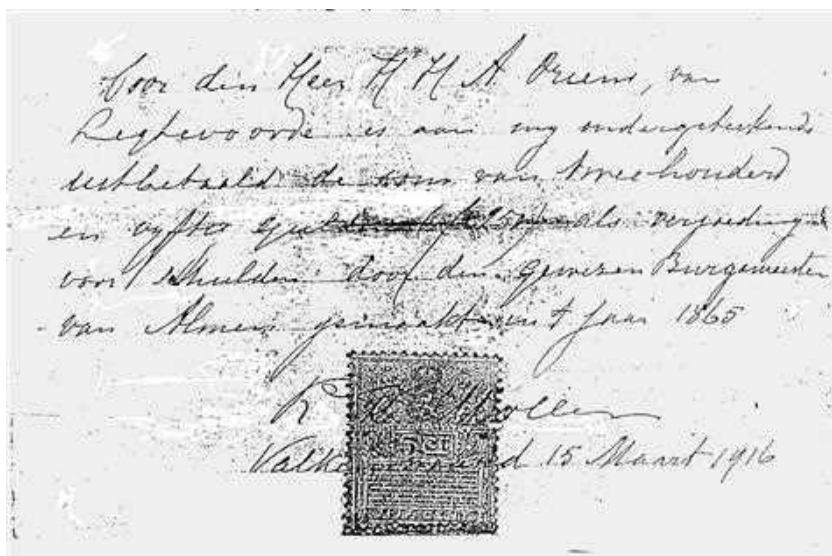 door den Heer H H A Oriem, van
Leghevoorde is aan my ondergeteekende
uitbetaald de som van tweehonderd
en vyftig gulden als vergoeding
voor schulden door den gewezen Burgemeester
van Almen gemaakt in 't Jaar 1865
K
5 CT
15 Maart 1916